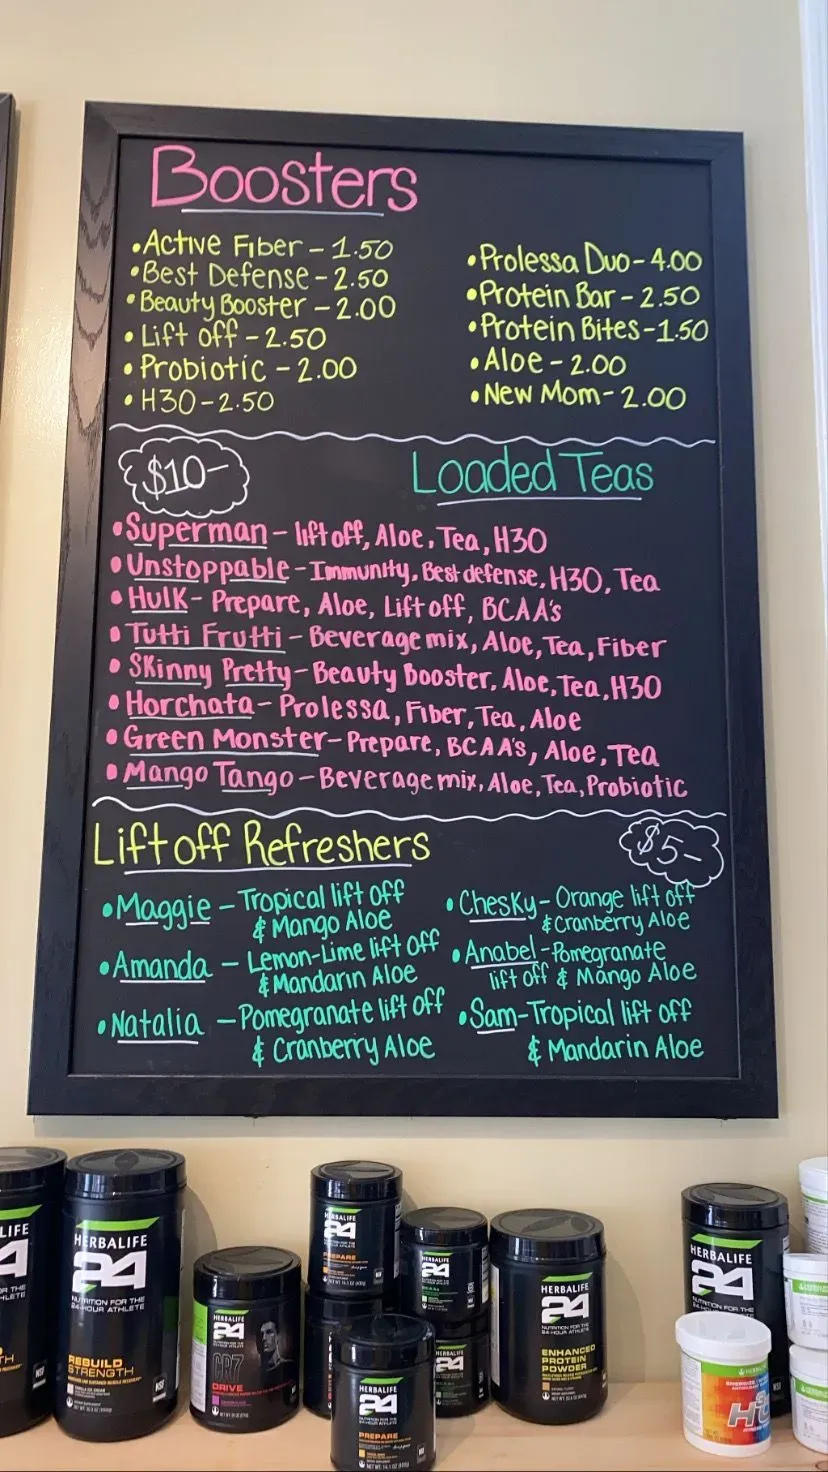 Boosters
•Active Fiber - 1.50
•Best Defense - 2.50
•Beauty Booster - 2.00
•Lift off - 2.50
•Probiotic - 2.00
•H30 - 2.50
•Prolessa Duo - 4.00
•Protein Bar - 2.50
•Protein Bites - 1.50
•Aloe - 2.00
•New Mom - 2.00
$10-
Loaded Teas
•Superman - lift off, Aloe, Tea, H30
•Unstoppable - Immunity, Best defense, H30, Tea
•Hulk - Prepare, Aloe, Lift off, BCAA's
•Tutti Frutti - Beverage mix, Aloe, Tea, Fiber
•Skinny Pretty - Beauty booster, Aloe, Tea, H30
•Horchata - Prolessa, Fiber, Tea, Aloe
•Green Monster - Prepare, BCAA's, Aloe, Tea
•Mango Tango - Beverage mix, Aloe, Tea, Probiotic
Lift off Refreshers
$5-
•Maggie - Tropical lift off
& Mango Aloe
•Amanda - Lemon-Lime lift off
& Mandarin Aloe
•Natalia - Pomegranate lift off
& Cranberry Aloe
•Chesky - Orange lift off
& Cranberry Aloe
•Anabel - Pomegranate
lift off & Mango Aloe
•Sam - Tropical lift off
& Mandarin Aloe
HERBALIFE
24
NUTRITION FOR THE
24-HOUR ATHLETE
REBUILD
STRENGTH
NSF
HERBALIFE
24
CR7
DRIVE
HERBALIFE
24
PREPARE
HERBALIFE
24
HERBALIFE
24
PREPARE
HERBALIFE
24
NUTRITION FOR THE
24-HOUR ATHLETE
ENHANCED
PROTEIN
POWDER
HERBALIFE
24
NUTRITION FOR THE